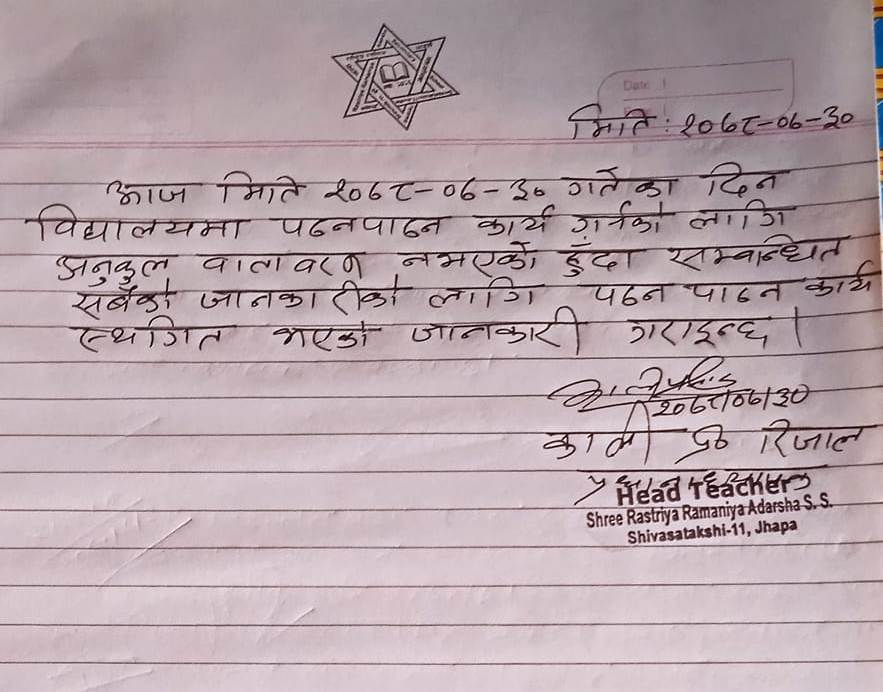 Date :
मिति : २०७८-०६-३०
आज मिति २०७८-०६-३० गतेका दिन
विद्यालयमा पठनपाठन कार्य गर्नको लागि
अनुकुल वातावरण नभएको हुँदा सम्वन्धित
सबैको जानकारीको लागि पठन पाठन कार्य
स्थगित भएको जानकारी गराइन्छ ।
२०७८।०६।३०
प्र० रिजाल
Head Teacher
Shree Rastriya Ramaniya Adarsha S. S.
Shivasatakshi-11, Jhapa